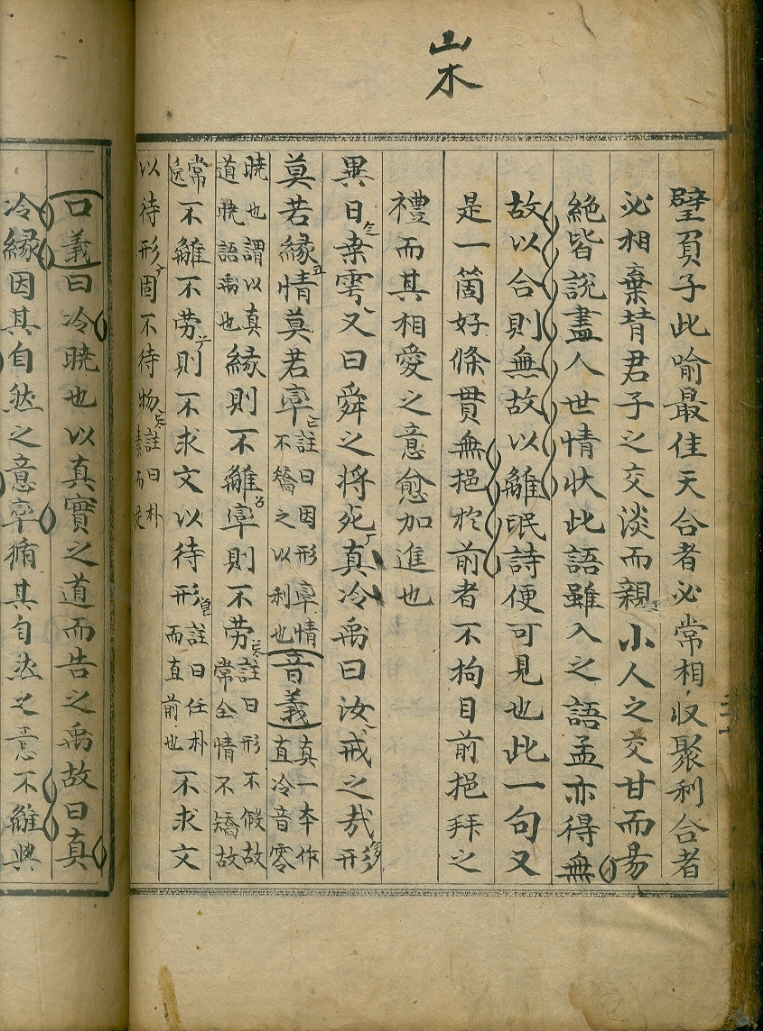 山木
璧負子此喻最佳天合者必常相収聚利合者
必相棄背君子之交淡而親小人之交甘而易
絶皆說盡人世情状此語雖入之語孟亦得無
故以合則無故以離氓詩便可見也此一句又
是一箇好條貫無挹於前者不拘目前挹拜之
禮而其相愛之意愈加進也
異日桑雩又曰舜之将死真冷禹曰汝戒之㦲形
莫若緣情莫若率註曰因形率情不矯之以利也音義真一本作直冷音零
曉也謂以真道曉語禹也緣則不離率則不勞註曰形不假故常全情不矯故
常逸不離不勞則不求文以待形註曰任朴而直前也不求文
以待形固不待物註曰朴素而足
口義曰冷曉也以真實之道而告之禹故曰真
冷緣因其自然之意率循其自然之意不離與